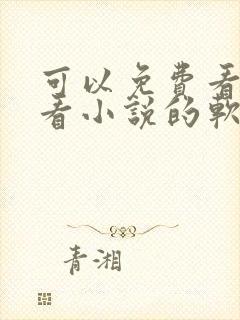 可以免费看
看小說的軟
青湘